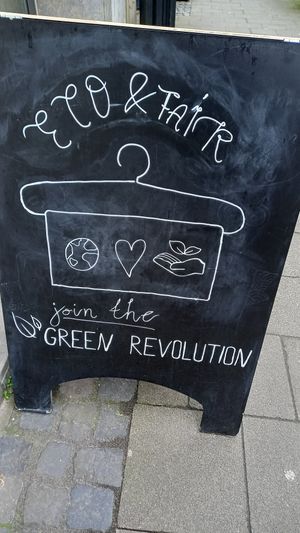 ECO & FAIR
join the
GREEN REVOLUTION